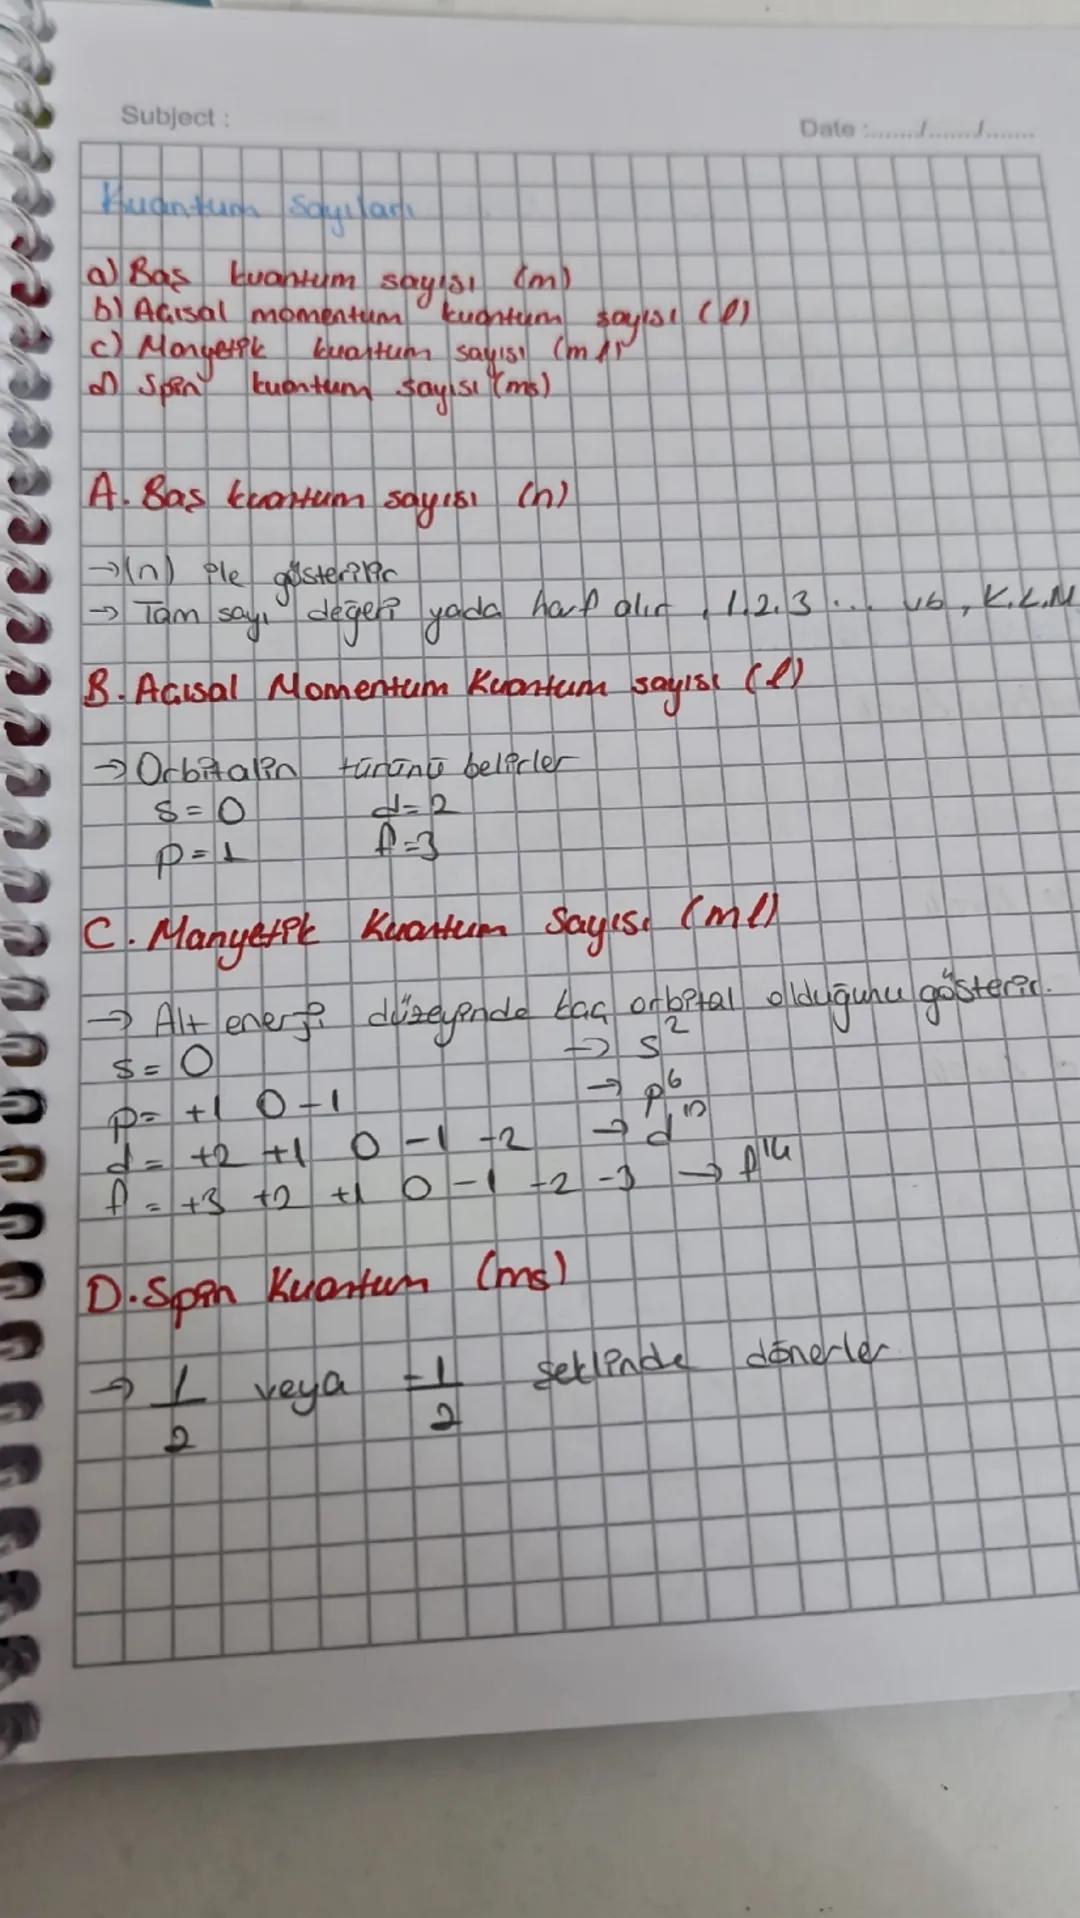 Subject :
Date :......./......./.......
Kuantum Sayıları
a) Baş kuantum sayısı (m)
b) Açısal momentum kuantum sayısı (l)
c) Manyetik kuantum sayısı (ml)
d) Spin kuantum sayısı (ms)
A. Baş kuantum sayısı (n)
→ (n) ile gösterilir
→ Tam sayı değeri yada harf alır, 1,2,3 ... vb, K.L.M
B. Açısal Momentum Kuantum sayısı (l)
→ Orbitalin türünü belirler
s = 0 d = 2
p = 1 f = 3
C. Manyetik Kuantum Sayısı (ml)
→ Alt enerji düzeyinde kaç orbital olduğunu gösterir.
s = 0 → s²
p = +1 0 -1 → p⁶
d = +2 +1 0 -1 -2 → d¹⁰
f = +3 +2 +1 0 -1 -2 -3 → f¹⁴
D. Spin Kuantum (ms)
→ 1/2 veya -1/2 şeklinde dönerler